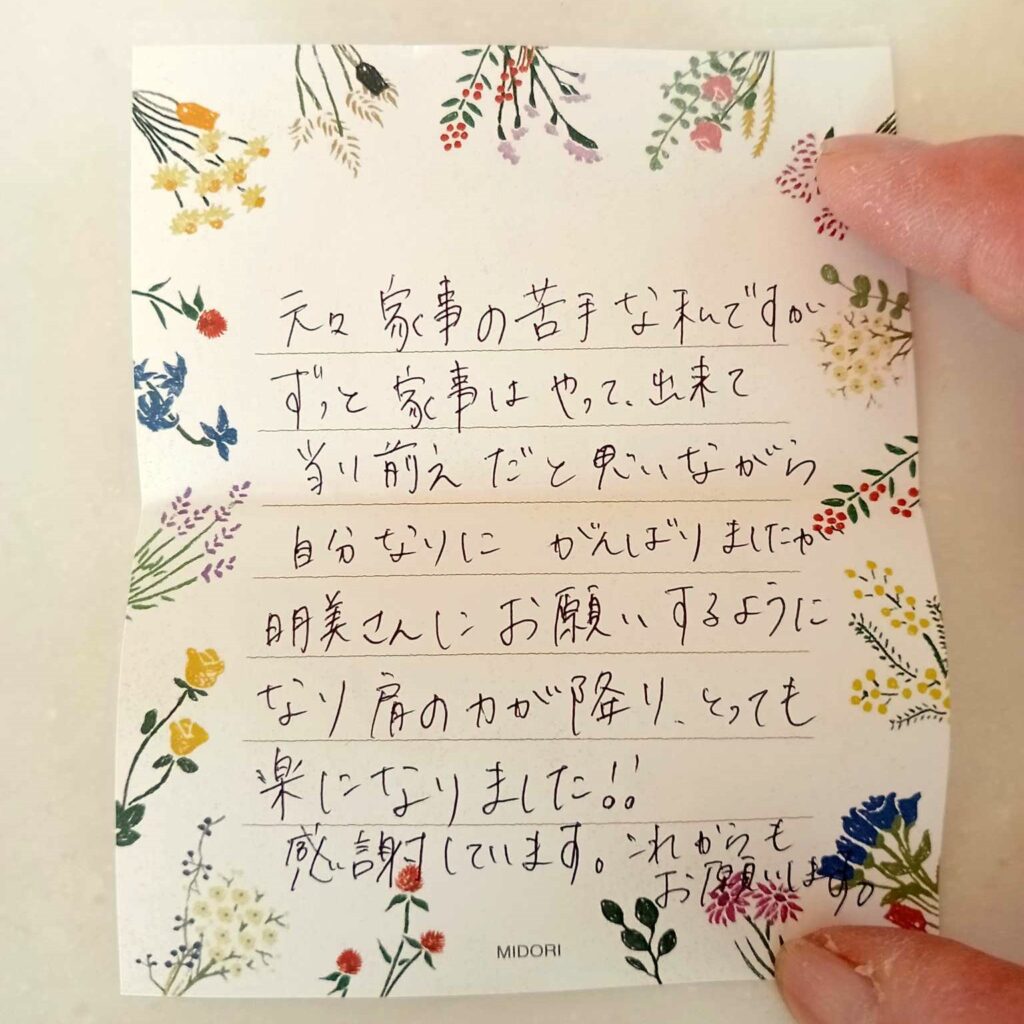 元々家事の苦手な私ですが
ずっと家事はやって、出来て
当り前えだと思いながら
自分なりに がんばりましたが
明美さんにお願いするように
なり肩の力が降り、とっても
楽になりました!!
感謝しています。これからも
お願いします。
MIDORI